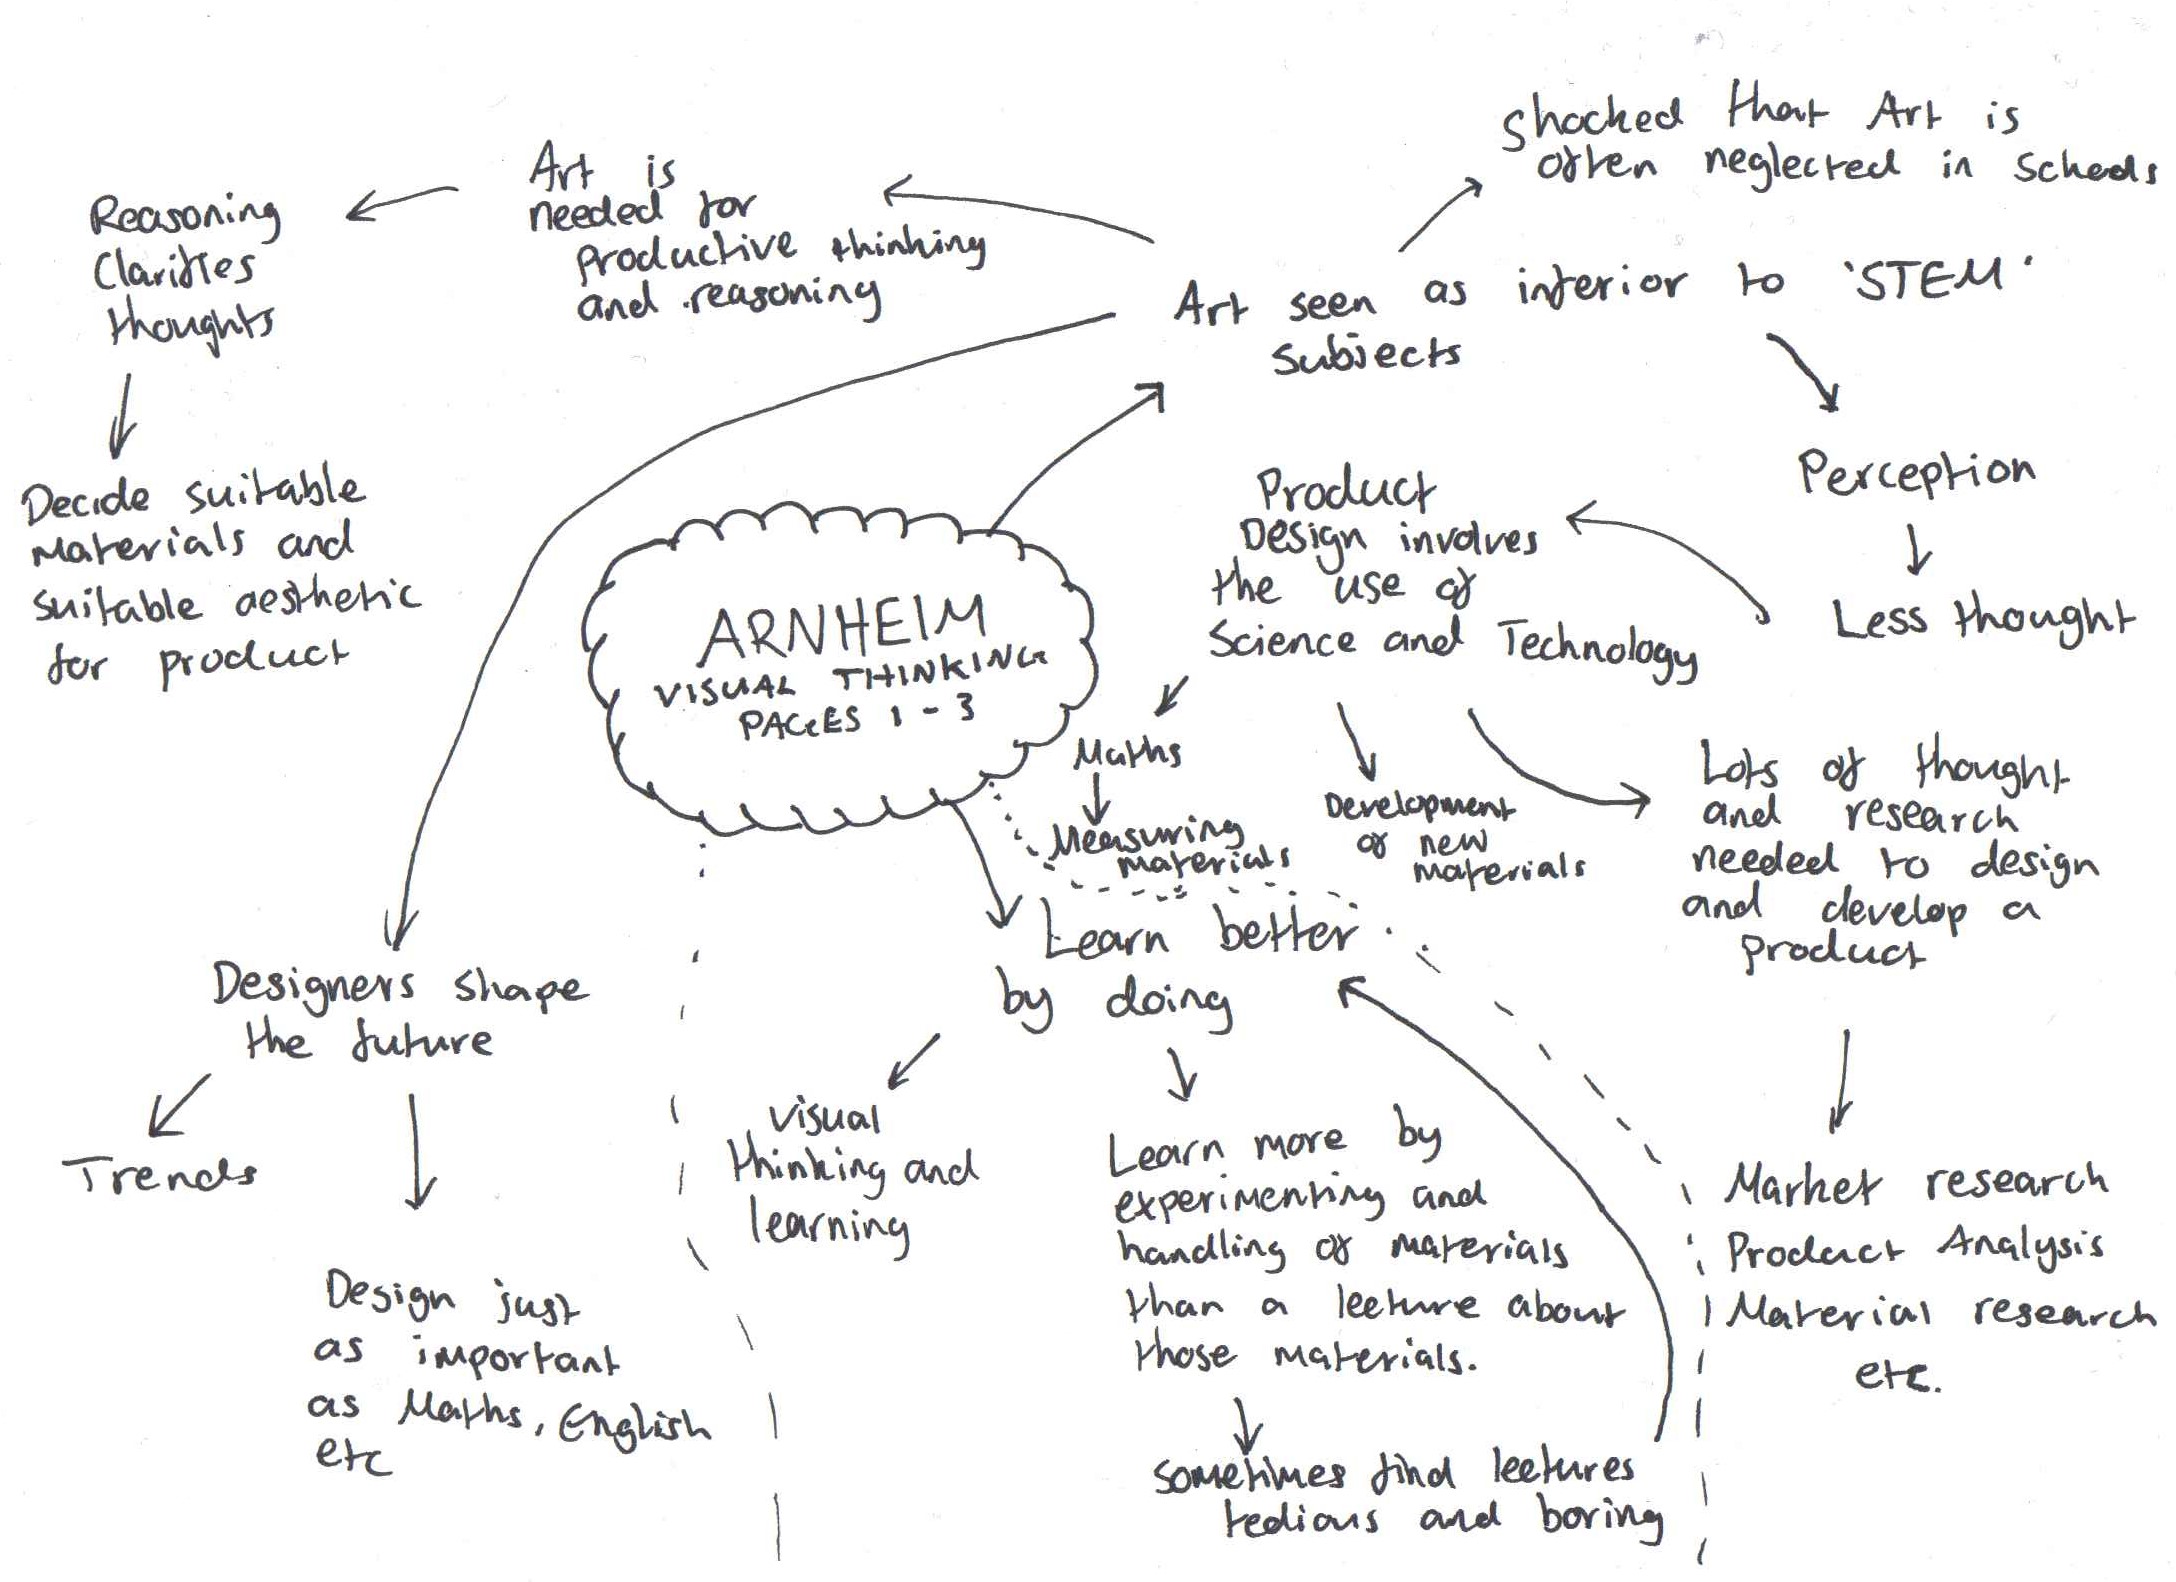 Shocked that Art is
often neglected in Schools
Art is
needed for
productive thinking
and reasoning
Reasoning
Clarifies
thoughts
Art seen as inferior to 'STEM'
subjects
Decide suitable
materials and
suitable aesthetic
for product
Perception
Less thought
Product
Design involves
the use of
Science and Technology
ARNHEIM
VISUAL THINKING
PAGES 1-3
Maths
Measuring
materials
Development
of new
materials
Lots of thought
and research
needed to design
and develop a
product
Learn better
by doing
Designers shape
the future
Trends
Design just
as important
as Maths, English
etc
visual
thinking and
learning
Learn more by
experimenting and
handling of materials
than a lecture about
those materials.
sometimes find lectures
tedious and boring
Market research
Product Analysis
Material research
etc.